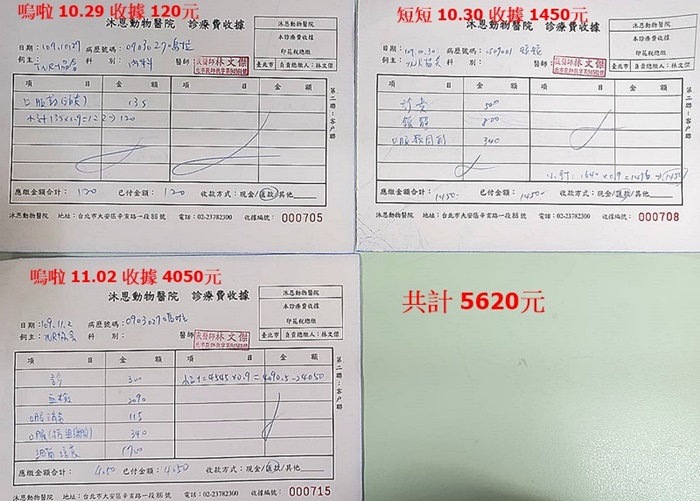 嗚啦 10.29 收據 120元
沐恩動物醫院 診療費收據
沐恩動物醫院
本診療費收據
印花稅總繳
臺北市 負責總繳人：林文傑
日期：109.10.29 病歷號碼：0903027嗚啦
飼主：TNR協會 科 別：內科 醫師
獸醫師林文傑
項 目 金 額 項 目 金 額
135
小計135x0.9=122→120
第二聯：客戶聯
應繳金額合計：120 已付金額：120 收款方式：現金/匯款/其他
沐恩動物醫院 地址：台北市大安區辛亥路一段86號 電話：02-23782300 收據編號：000705
短短 10.30 收據 1450元
沐恩動物醫院 診療費收據
沐恩動物醫院
本診療費收據
印花稅總繳
臺北市 負責總繳人：林文傑
日期：109.10.30 病歷號碼：短短
飼主：TNR協會 科 別： 醫師
獸醫師林文傑
項 目 金 額 項 目 金 額
診費 500
800
340
小計：1640x0.9=1476→1450
第二聯：客戶聯
應繳金額合計：1450 已付金額：1450 收款方式：現金/匯款/其他
沐恩動物醫院 地址：台北市大安區辛亥路一段86號 電話：02-23782300 收據編號：000708
嗚啦 11.02 收據 4050元
沐恩動物醫院 診療費收據
沐恩動物醫院
本診療費收據
印花稅總繳
臺北市 負責總繳人：林文傑
日期：109.11.2 病歷號碼：0903027嗚啦
飼主：TNR協會 科 別： 醫師
獸醫師林文傑
項 目 金 額 項 目 金 額
診 300 小計=4545x0.9=4090.5→4050
血檢 2090
115
340
細菌培養 1700
第二聯：客戶聯
應繳金額合計：4050 已付金額：4050 收款方式：現金/匯款/其他
沐恩動物醫院 地址：台北市大安區辛亥路一段86號 電話：02-23782300 收據編號：000715
共計 5620元